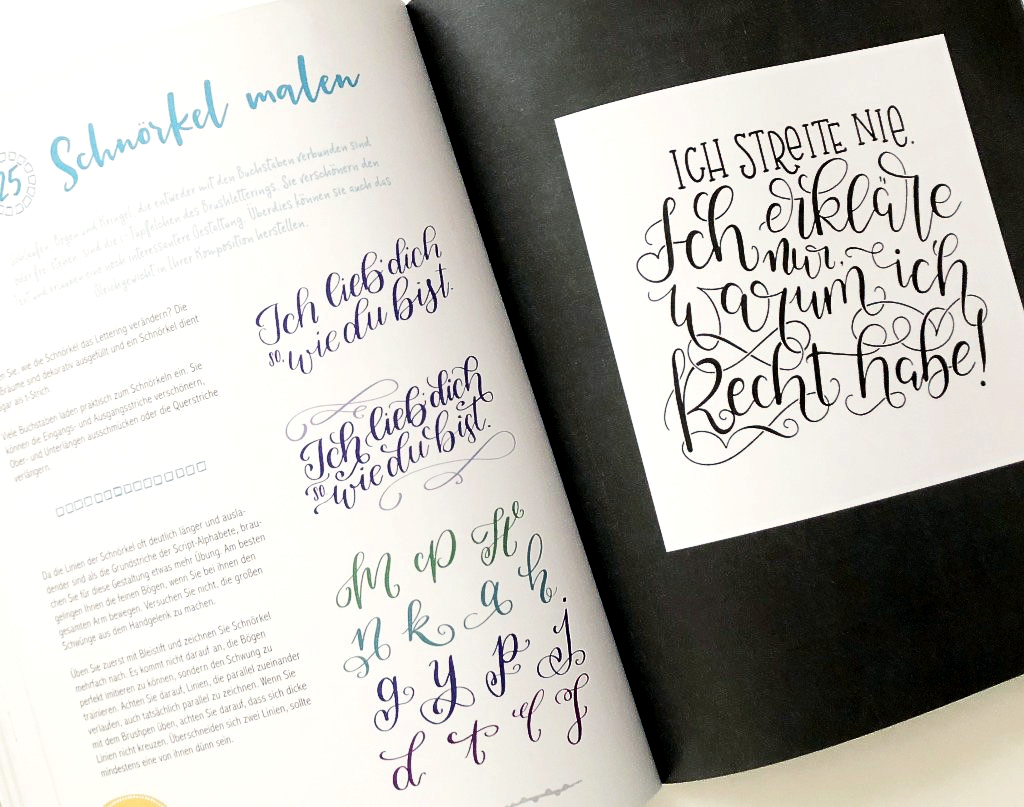 25
Schnörkel malen
Bögen und Kringel, die entweder mit den Buchstaben verbunden sind
oder frei stehen, sind die i-Tüpfelchen des Brushletterings. Sie verschönern den
und erlauben eine noch interessantere Gestaltung. Überdies können sie auch das
Gleichgewicht in Ihrer Komposition herstellen.
Sie, wie die Schnörkel das Lettering verändern? Die
räume sind dekorativ ausgefüllt und ein Schnörkel dient
gar als t-Strich.
Viele Buchstaben laden praktisch zum Schnörkeln ein. Sie
können die Eingangs- und Ausgangsstriche verschönern,
Ober- und Unterlängen ausschmücken oder die Querstriche
verlängern.
Da die Linien der Schnörkel oft deutlich länger und ausla-
dender sind als die Grundstriche der Script-Alphabete, brau-
chen Sie für diese Gestaltung etwas mehr Übung. Am besten
gelingen Ihnen die feinen Bögen, wenn Sie bei ihnen den
gesamten Arm bewegen. Versuchen Sie nicht, die großen
Schwünge aus dem Handgelenk zu machen.
Üben Sie zuerst mit Bleistift und zeichnen Sie Schnörkel
mehrfach nach. Es kommt nicht darauf an, die Bögen
perfekt imitieren zu können, sondern den Schwung zu
trainieren. Achten Sie darauf, Linien, die parallel zueinander
verlaufen, auch tatsächlich parallel zu zeichnen. Wenn Sie
mit dem Brushpen üben, achten Sie darauf, dass sich dicke
Linien nicht kreuzen. Überschneiden sich zwei Linien, sollte
mindestens eine von ihnen dünn sein.
Ich lieb dich
so, wie du bist.
Ich lieb dich
so wie du bist.
M P H
n k a h
g y p j
d t l f
ICH STREITE NIE.
Ich erkläre
nur,
warum ich
Recht habe!